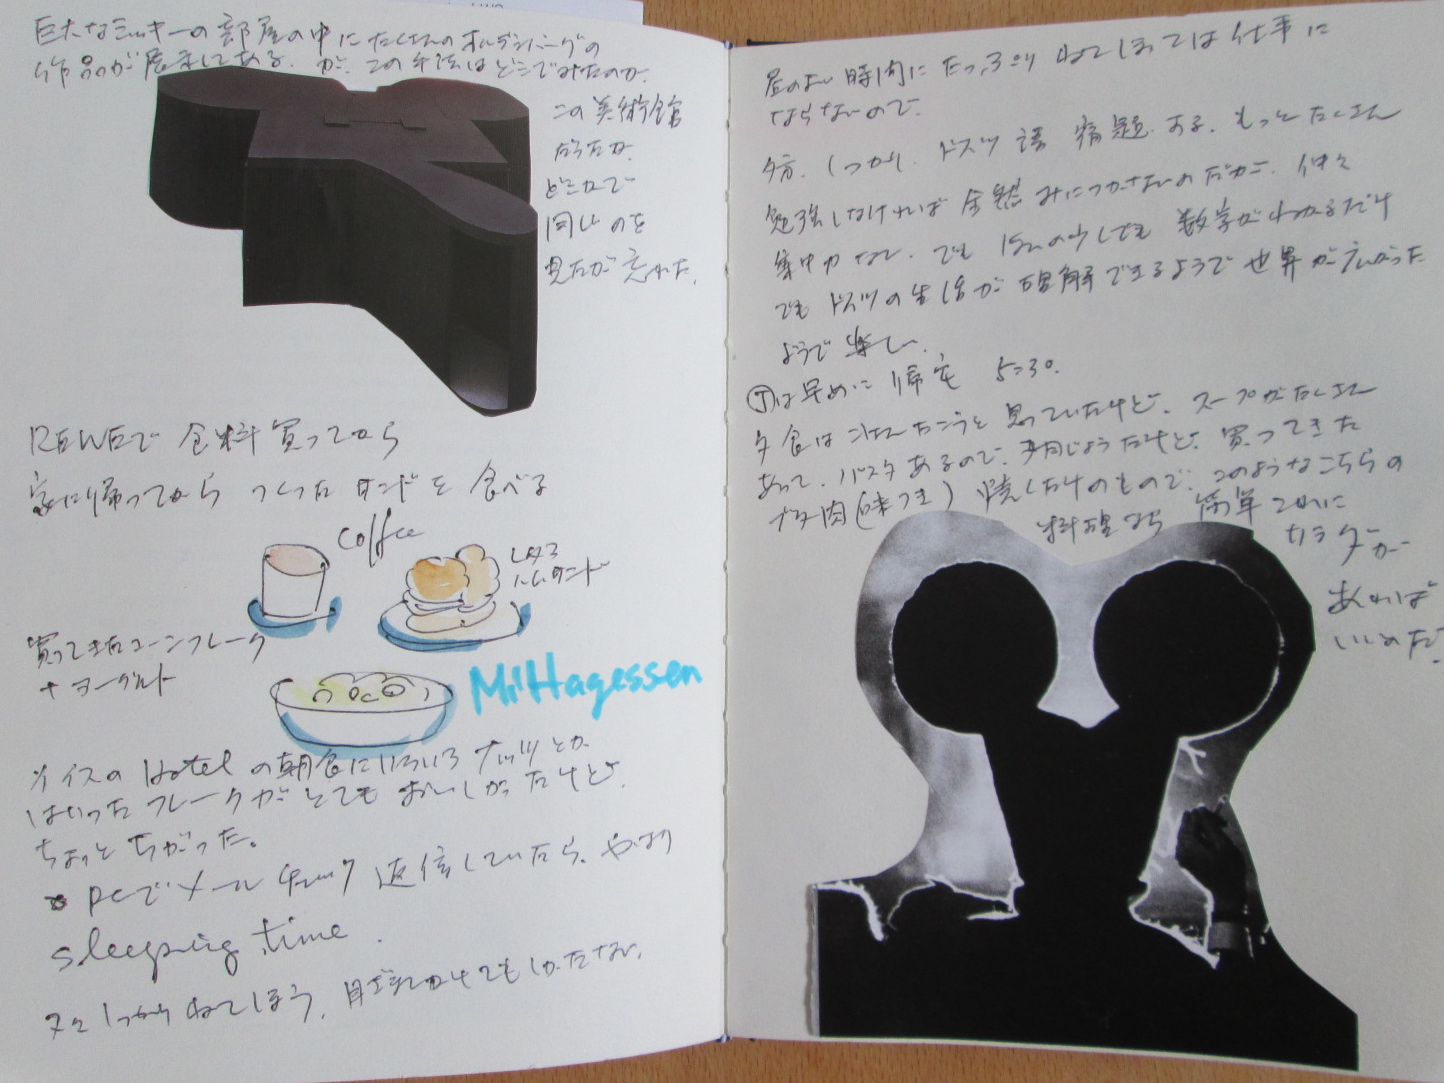 巨大なミッキーの部屋の中にたくさんのオルデンバーグの
作品が展示してある。が、この手法はどこでみたのか。
この美術館
だったか、
どこかで
同じのを
見たが忘れた。
REWEで食料買ってから
家に帰ってから つくったサンドを食べる
coffee
レタス
ハムサンド
買ってきたコーンフレーク
+ヨーグルト
Mittagessen
スイスのHotelの朝食にいろいろナッツとか
はいったフレークがとてもおいしかったけど、
ちょっとちがった。
PCでメールチェック返信していたら、やはり
sleeping time.
又々しっかりねてしまう。目ざましかけてもしかたない。
昼のよい時間にたっぷりねてしまっては仕事に
ならないので。
夕方、しっかり、ドイツ語宿題する。もっとたくさん
勉強しなければ全然みにつかないのだが、仲々
集中力なし。でもほんの少しでも数字がわかるだけ
でもドイツの生活が理解できるようで世界が広がった
ようで楽しい。
Ⓣは早めに帰宅 5:30.
夕食は思っていたけど、スープがたくさん
あって、パスタあるので、買ってきた
肉(味つき)焼しただけのもので、このようなこちらの
料理なら 簡単でいい
サラダが
あれば
いいのだ。